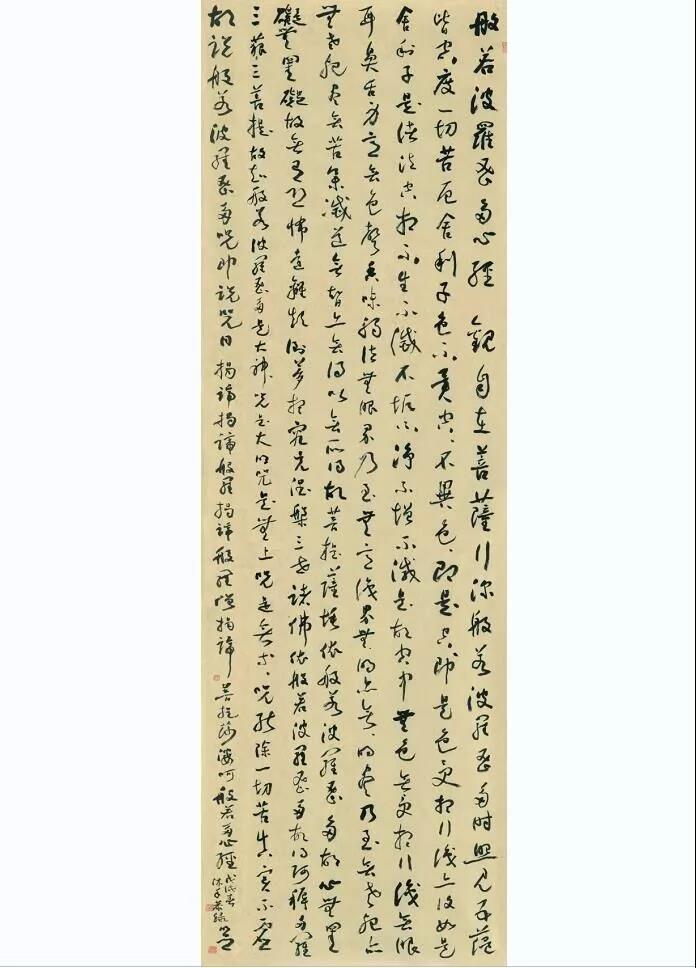 般若波羅蜜多心經 觀自在菩薩行深般若波羅蜜多時照見五蘊
皆空度一切苦厄舍利子色不異空、不異色、即是空即是色受想行識亦復如是
舍利子是諸法空相不生不滅不垢不淨不增不減是故空中無色無受想行識無眼
耳鼻舌身意無色聲香味觸法無眼界乃至無意識界無明亦無、明盡乃至無老死亦
無老死盡無苦集滅道無智亦無得以無所得故菩提薩埵依般若波羅蜜多故心無罣
礙無罣礙故無有恐怖遠離顛倒夢想究竟涅槃三世諸佛依般若波羅蜜多故得阿耨多羅
三藐三菩提故知般若波羅蜜多是大神咒是大明咒是無上咒是無等、咒能除一切苦真實不虛
故說般若波羅蜜多咒即說咒曰揭諦揭諦般羅揭諦般羅僧揭諦菩提莎婆呵般若心經
戊戌春